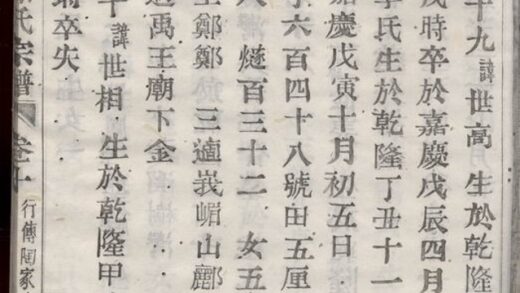 十九 諱世高 生於乾隆
戌時卒於嘉慶戊辰四月
李氏生於乾隆丁丑十一
嘉慶戊寅十月初五日
字六百四十八號田五厘
八 燧百三十二 女五
主鄭鄭 三適峩嵋山酈
適禹王廟下金
十 諱世相 生於乾隆甲
時卒失
氏宗譜 卷十 行傳陶家